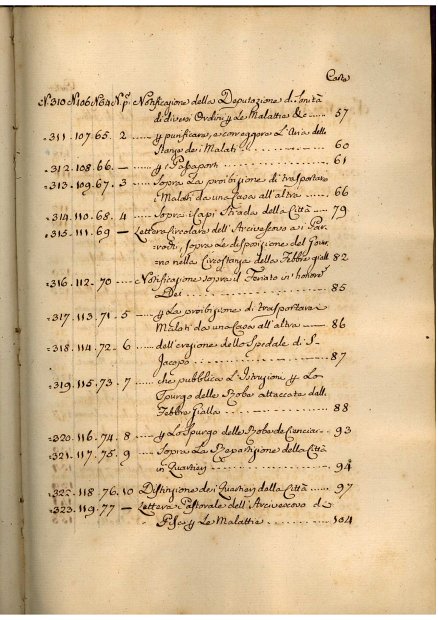 Carte
N. 310 N. 106 N. 64 N. pº Notificazione della Deputazione di Sanità
di diversi Ordini p Le Malattie &c ---- 57
311. 107. 65. 2 ---- p purificare, e correggere L'Aria delle
Stanze dei Malati ---- 60
312. 108. 66. — ---- p i Passaporti ---- 61
313. 109. 67. 3 ---- Sopra La proibizione di trasportare
i Malati da una Casa all'altra ---- 66
314. 110. 68. 4 ---- Sopra i Capi Strada della Città ---- 79
315. 111. 69 — Lettera Circolare dell'Arcivescovo ai Par-
rochi, sopra Le disposizione del Gover-
no nella Circostanza della Febbre gialla 82
316. 112. 70 ---- Notificazione sopra il Feriato in honorem
Dei ---- 85
317. 113. 71. 5 ---- p La proibizione di trasportare i
Malati da una Casa all'altra ---- 86
318. 114. 72. 6 ---- dell'erezione dello Spedale di S.
Jacopo ---- 87
319. 115. 73. 7 ---- che pubblica L'Istruzioni p Lo
Spurgo delle Robe attaccate dalla
Febbre Gialla ---- 88
320. 116. 74. 8 ---- p Lo Spurgo delle Robe de ---- 93
321. 117. 75. 9 ---- Sopra La Repartizione della Città
in Quartieri ---- 94
322. 118. 76. 10 Distinzione dei Quartieri della Città ---- 97
323. 119. 77 — Lettera Pastorale dell'Arcivescovo di
Pisa p Le Malattie ---- 104